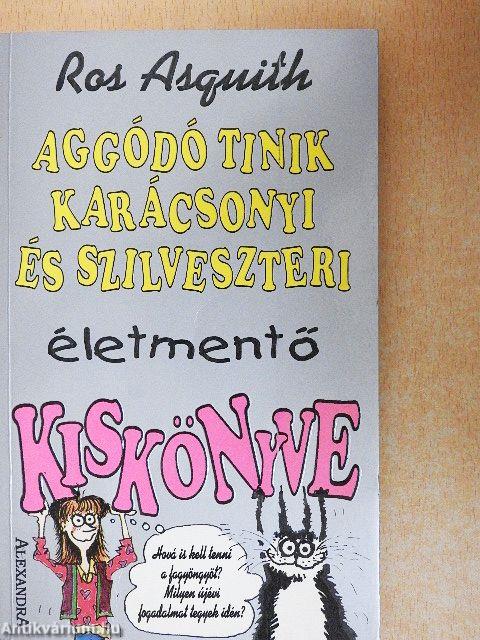 Ros Asquith
AGGÓDÓ TINIK
KARÁCSONYI
ÉS SZILVESZTERI
életmentő
KISKÖNYVE
Hová is kell tenni
a fagyöngyöt?
Milyen újévi
fogadalmat tegyek idén?
ALEXANDRA
Antikvárium.hu